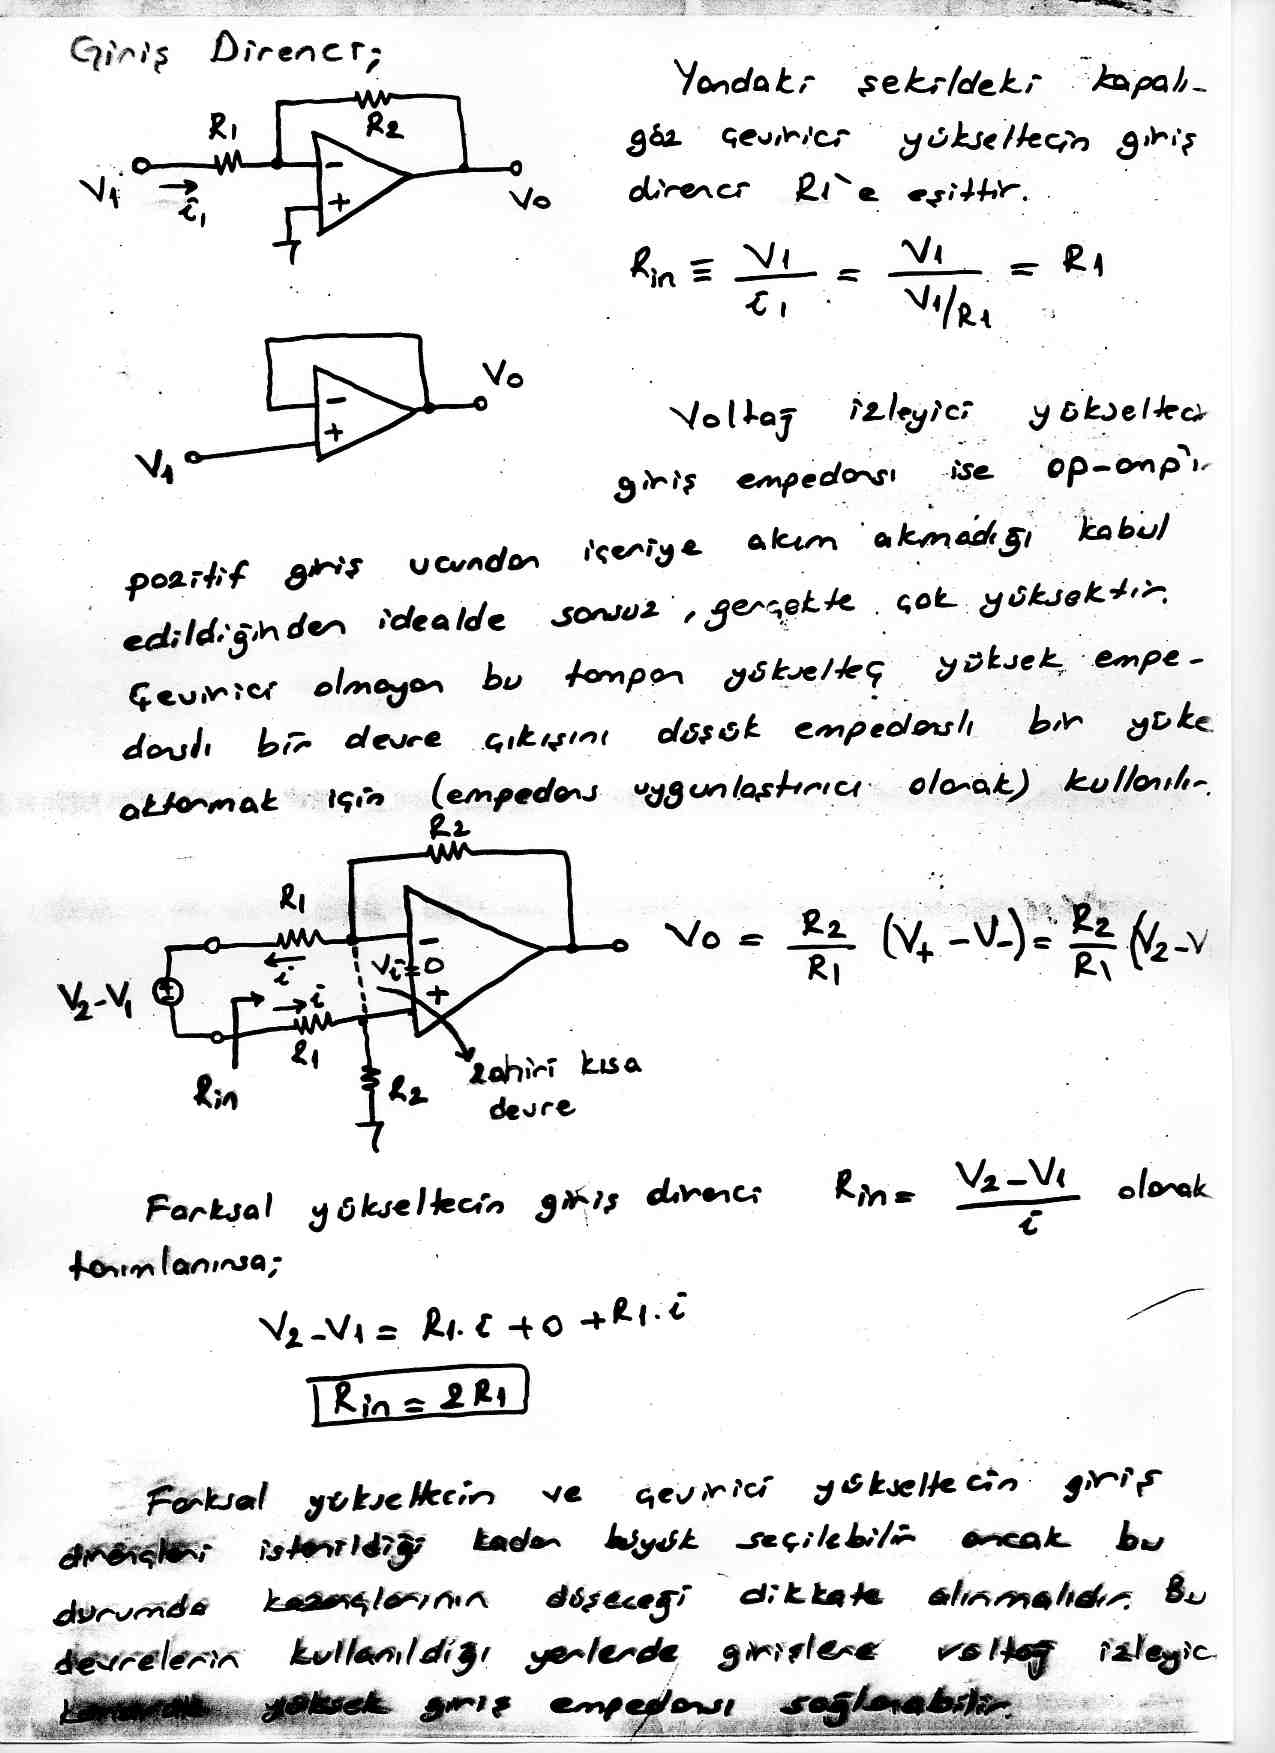 Giriş Direnci;
R1
R2
V1
i1
-
+
Vo
Yandaki şekildeki kapalı-
göz çevirici yükseltecin giriş
direnci R1`e eşittir.
Rin ≡ V1/i1 = V1/(V1/R1) = R1
Vo
-
+
V1
Voltaj izleyici yükselteci
giriş empedansı ise op-amp'ı
pozitif giriş ucundan içeriye akım akmadığı kabul
edildiğinden idealde sonsuz, gerçekte çok yüksektir.
Çevirici olmayan bu tampon yükselteç yüksek empe-
danslı bir devre çıkışını düşük empedanslı bir yüke
aktarmak için (empedans uygunlaştırıcı olarak) kullanılır.
R2
R1
i
Vi=0
-
+
V2-V1
i
R1
Rin
R2
zahiri kısa
devre
Vo = R2/R1 (V+ - V-) = R2/R1 (V2-V
Farksal yükseltecin giriş direnci Rin = V2-V1/i olarak
tanımlanırsa;
V2-V1 = R1.i + 0 + R1.i
Rin = 2R1
Farksal yükseltecin ve çevirici yükseltecin giriş
dirençleri istenildiği kadar büyük seçilebilir ancak bu
durumda kazançlarının düşeceği dikkate alınmalıdır. Bu
devrelerin kullanıldığı yerlerde girişlere voltaj izleyic
yüksek giriş empedansı sağlanabilir.